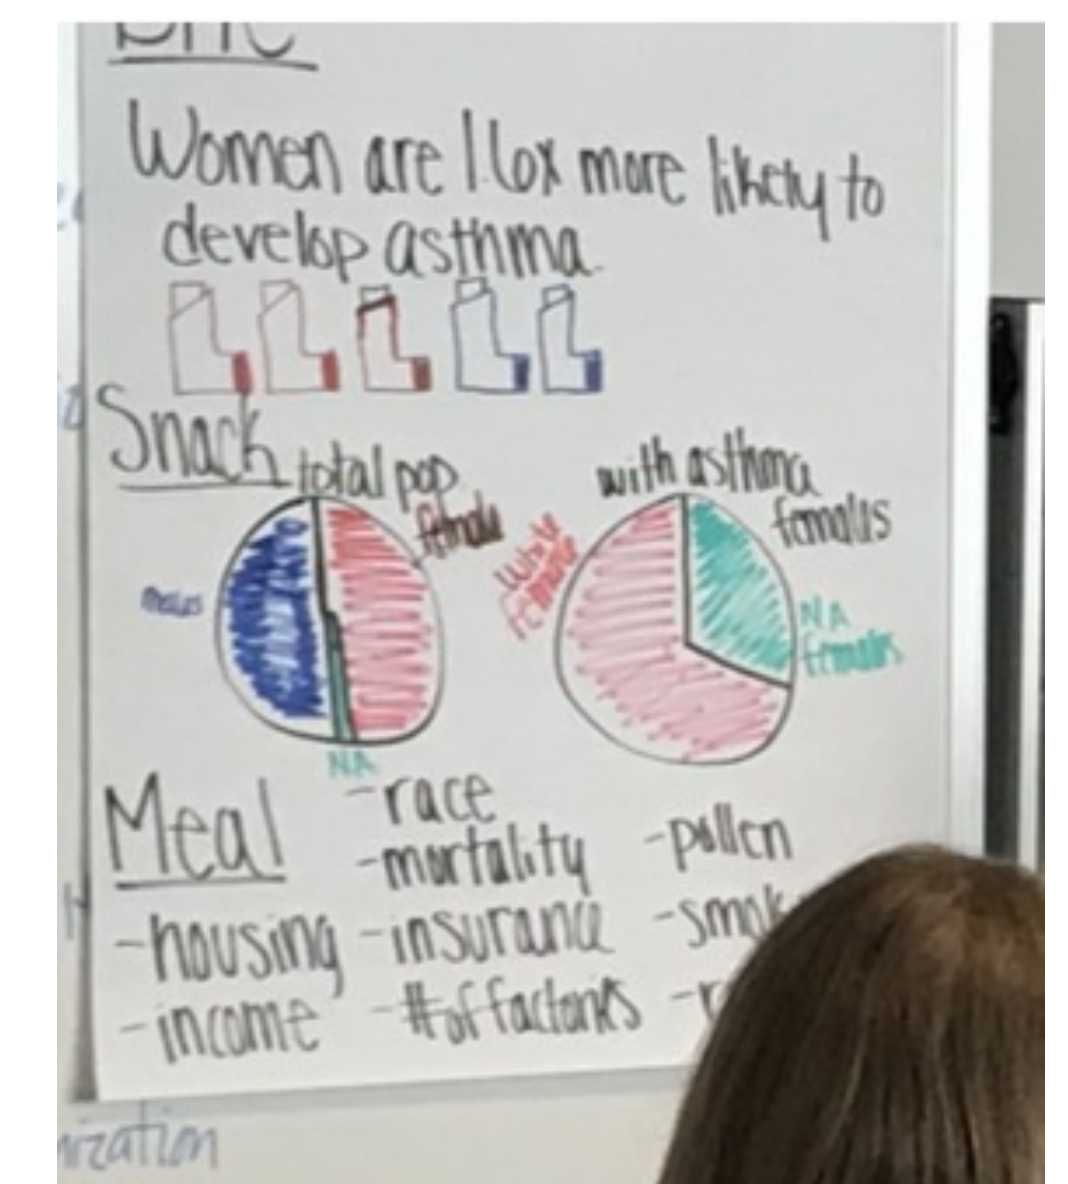 Women are 1.6x more likely to
develop asthma.
Snack
total pop
female
males
NA
with asthma
females
White
NA
females
Meal
-race
-mortality
-pollen
-housing
-insurance
-income
-#of factories
nization